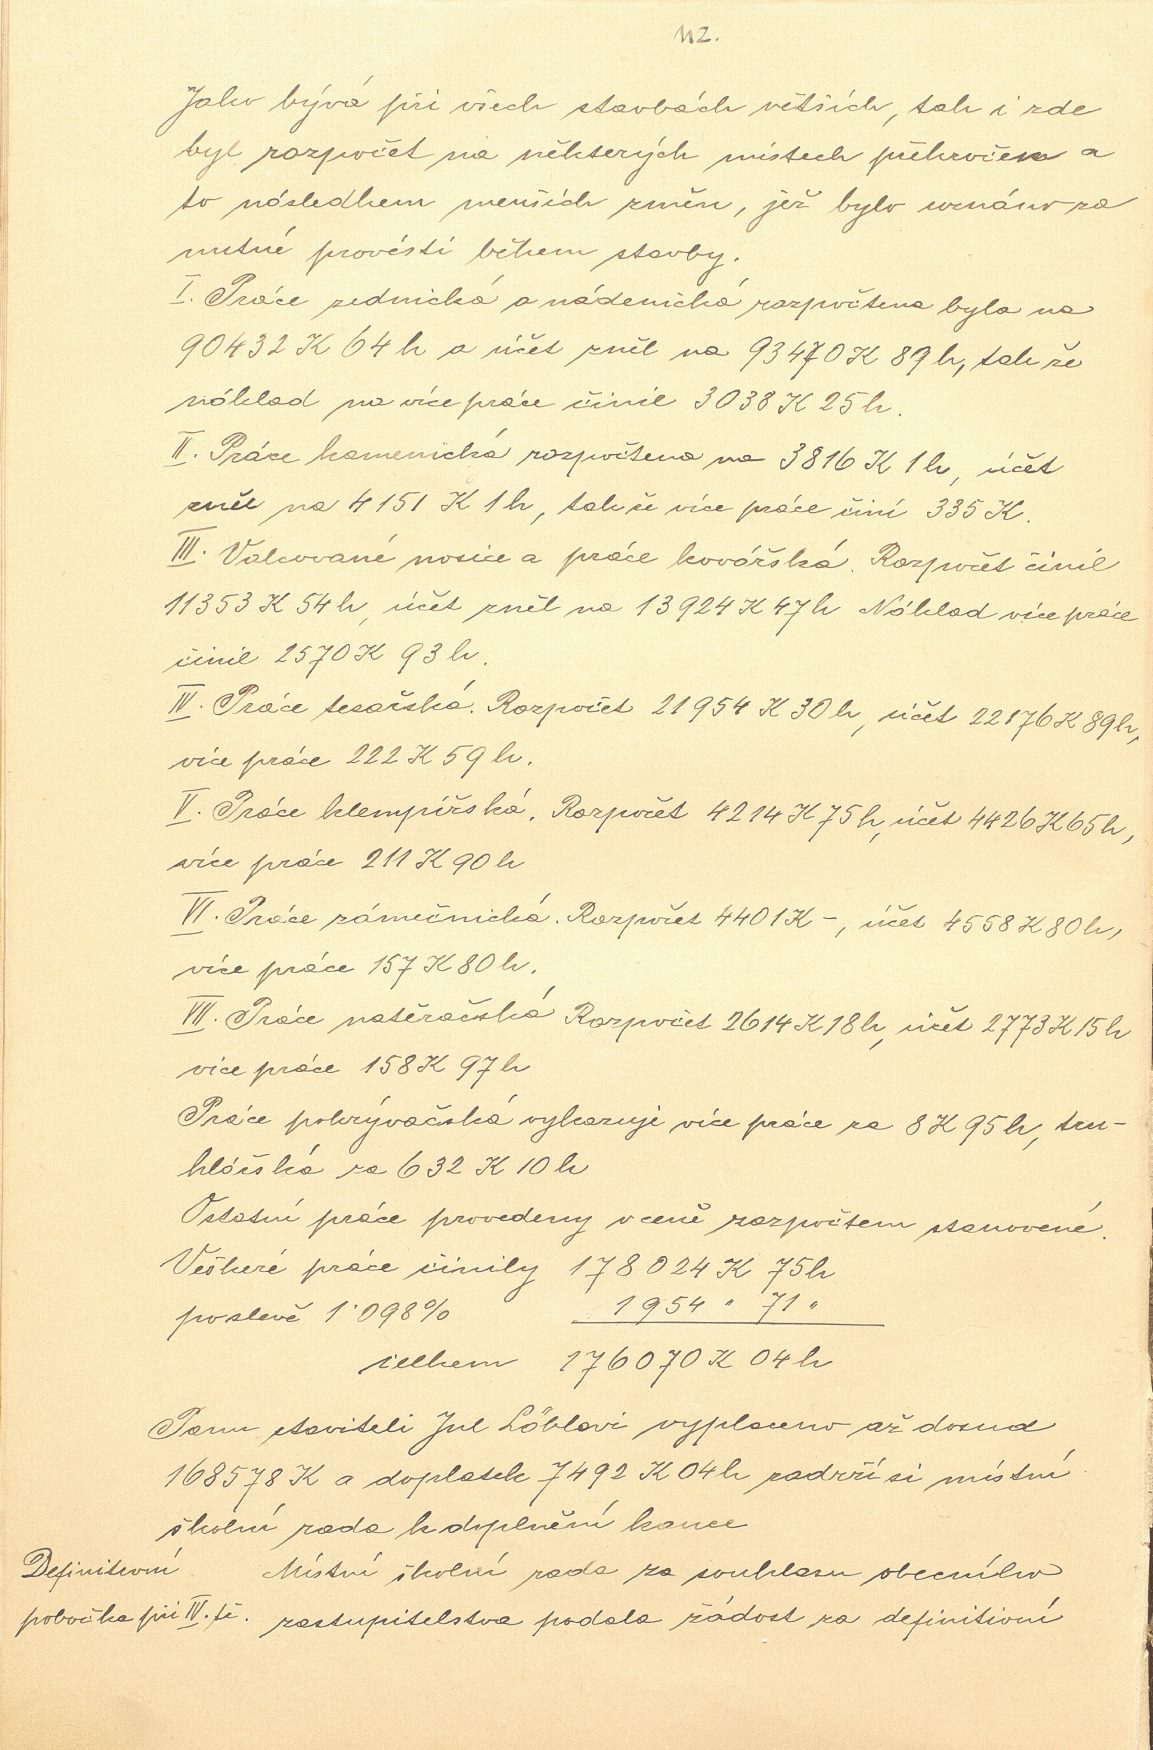 112.
Jako bývá při všech stavbách větších, tak i zde
byl rozpočet na některých místech překročen a
to následkem menších změn, jež bylo uznáno za
nutné provésti během stavby.
I. Práce zednická a nádenická rozpočtena byla na
90432 K 64 h a účet zněl na 93470 K 89 h, tak že
náklad na více práce činil 3038 K 25 h.
II. Práce kamenická rozpočtena na 3816 K 1 h, účet
zněl na 4151 K 1 h, tak že více práce činí 335 K.
III. Valcované nosice a práce kovářská. Rozpočet činil
11353 K 54 h, účet zněl na 13924 K 47 h Náklad více práce
činil 2570 K 93 h.
IV. Práce tesařská. Rozpočet 21954 K 30 h, účet 22176 K 89 h,
více práce 222 K 59 h.
V. Práce klempířská. Rozpočet 4214 K 75 h, účet 4426 K 65 h,
více práce 211 K 90 h
VI. Práce zámečnická. Rozpočet 4401 K –, účet 4558 K 80 h,
více práce 157 K 80 h.
VII. Práce natěračská Rozpočet 2614 K 18 h, účet 2773 K 15 h
více práce 158 K 97 h
Práce pokrývačská vykazuje více práce za 8 K 95 h, tru-
hlářská za 632 K 10 h
Ostatní práce provedeny v ceně rozpočtem stanovené.
Veškeré práce činily 178024 K 75 h
po slevě 1·098% 1954 " 71 "
celkem 176070 K 04 h
Panu staviteli Jul Löblovi vyplaceno až dosud
168578 K a doplatek 7492 K 04 h zadrží si místní
školní rada k doplnění kauce
Definitivní Místní školní rada za souhlasu obecního
pobočka při IV. tř. zastupitelstva podala žádost za definitivní